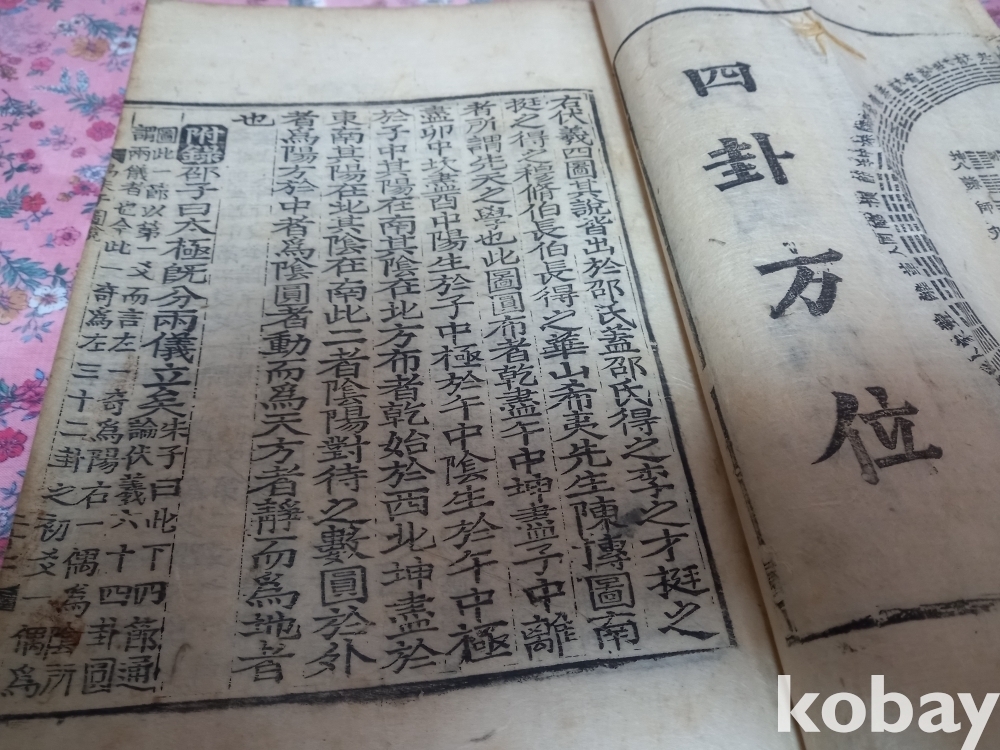 四卦方位
右伏羲四圖其說皆出於邵氏蓋邵氏得之李之才挺之
挺之得之穆脩伯長伯長得之華山希夷先生陳摶圖南
者所謂先天之學也此圖圓布者乾盡午中坤盡子中離
盡卯中坎盡酉中陽生於子中極於午中陰生於午中極
於子中其陽在南其陰在北方布者乾始於西北坤盡於
東南其陽在北其陰在南此二者陰陽對待之數圓於外
者為陽方於中者為陰圓者動而為天方者靜而為地者
也
附錄邵子曰太極既分兩儀立矣朱子曰此下四節通
論伏羲六十四卦圓
圖此一節以第一爻而言左一奇為陽右一偶為陰所
謂兩儀者也今此一奇為左三十二卦之初爻一偶為
kobay